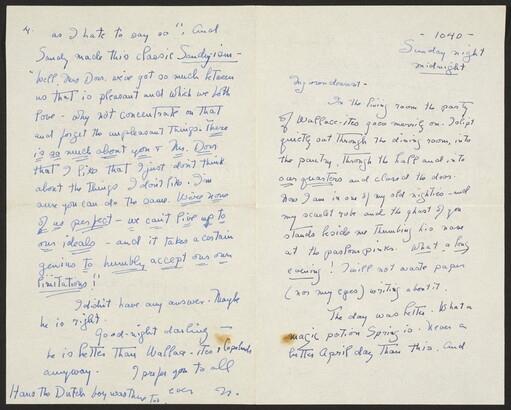 - 1040 -
Sunday night
midnight
My own dearest -
In the living room the party
of Wallace-ites goes merrily on. I slipt
quietly out through the dining room, into
the pantry, through the hall and into
our quarters and closed the door.
Now I am in one of my old nighties and
my scarlet robe and the ghost of you
stands beside me thumbing his nose
at the parlour pinks. What a long
evening! I will not waste paper
(nor my eyes) writing about it.
The day was better. What a
magic potion Spring is. Never a
better April day than this. And
4.
as I hate to say so", and
Sandy made this classic Sandyism -
"Well, Mrs Dorr, we've got so much between
us that is pleasant and which we both
love - why not concentrate on that
and forget the unpleasant things. There
is so much about you & Mr. Dorr
that I like that I just don't think
about the things I don't like. I'm
sure you can do the same. We're none
of us perfect - we can't live up to
our ideals - and it takes a certain
genius to humbly accept our own
limitations!"
I didn't have any answer. Maybe
he is right.
Good-night darling -
he is better than Wallace-ites &
anyway. I prefer you to all
Hans the Dutch boy was there too.
ever